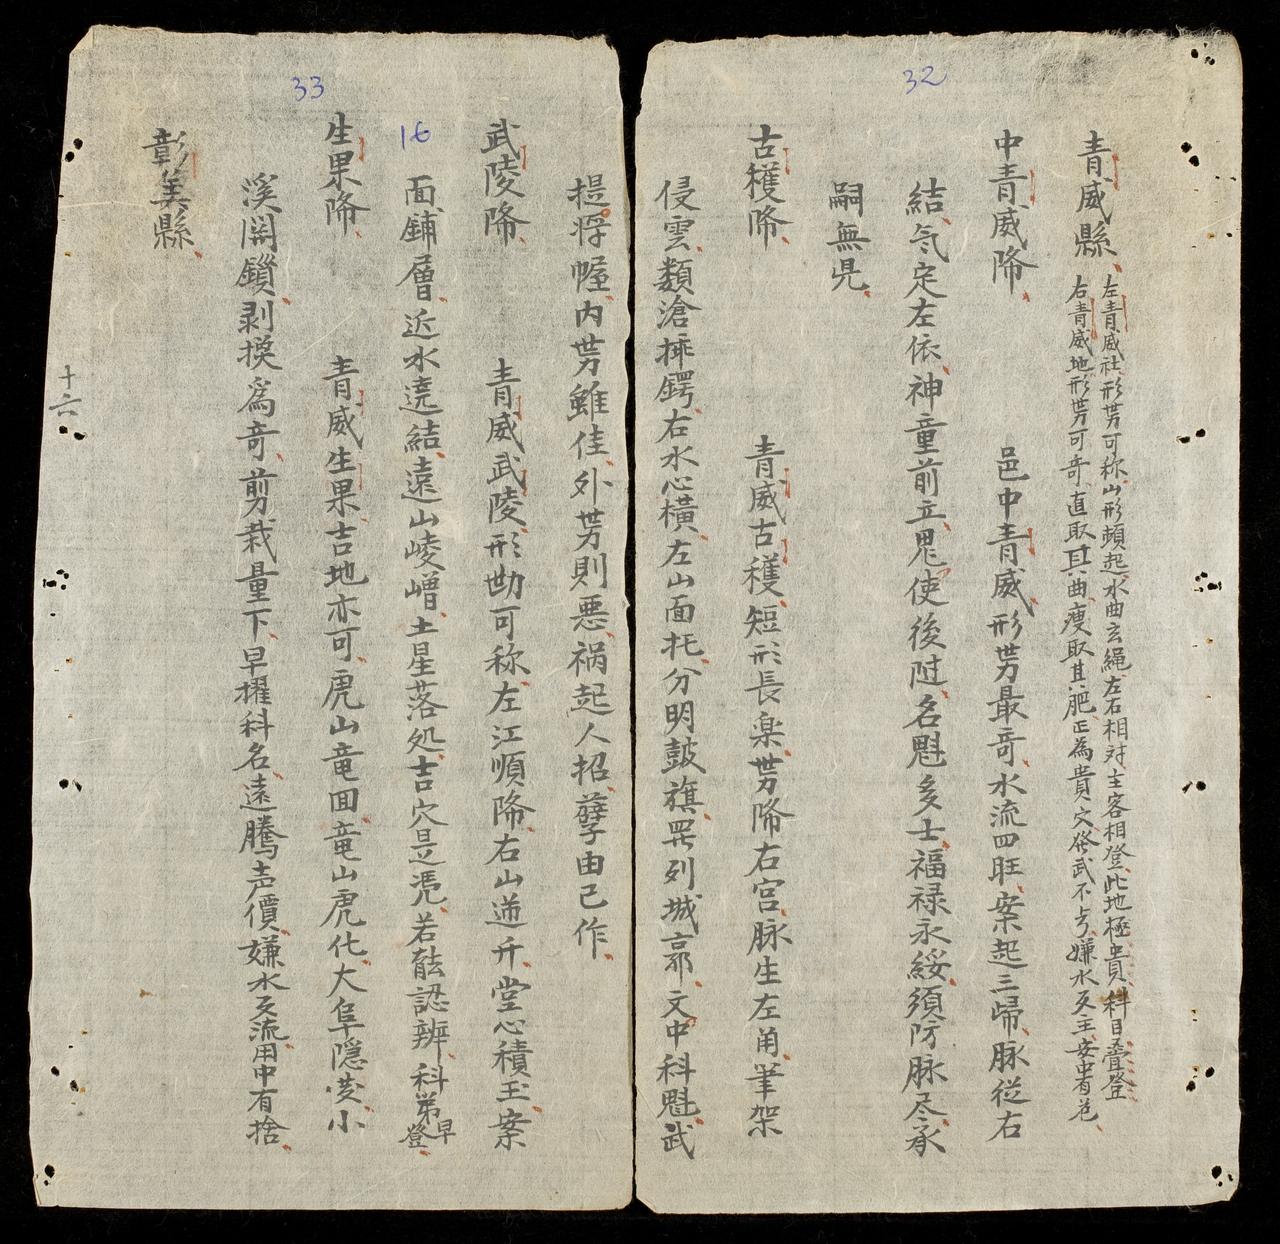 32
青威縣 左青威社形势可称山形頓起水曲玄繩左右相对主客相登此地極貴科目疊登
右青威地形势可奇直取其曲瘦取其肥正為貴穴発武不亏嫌水反主安中有危
中青威降 邑中青威形势最奇水流四旺案起三帰脉從右
結気定左依神童前立鬼使後随名魁多士福禄永綏須防脉尽承
嗣無児
古穫降 青威古穫短形長楽势降右宫脉生左角筆架
侵雲類滄排鍔右水心横左山面托分明鼓旗罗列城郭文中科魁武
提将幄内势雖佳外势則悪禍起人招孽由己作
武陵降 青威武陵形势可称左江順降右山逆升堂心積玉案
33
16
面鋪層近水遶結遠山崚嶒土星落処吉穴是凴若能認辨科第早登
生果降 青威生果吉地亦可虎山竜回竜山虎化大阜隠変小
溪関鎖剥換為奇剪裁量下早擢科名遠騰声價嫌水反流用中有捨
彰美縣
十六